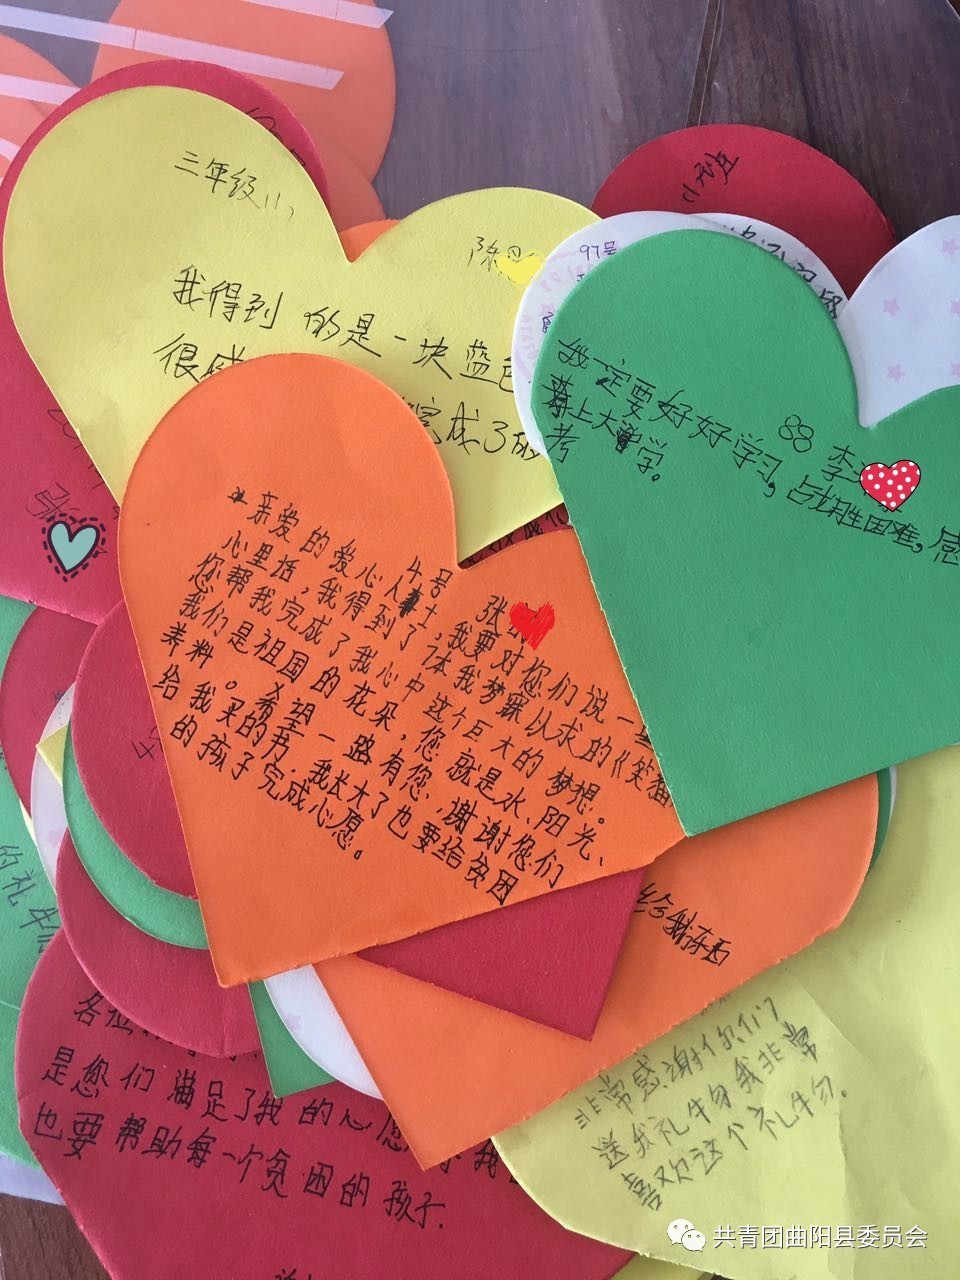 三年级(1)
陈
我得到的是一块蓝色
很感
完成了的
小班
97号
88 李
我一定要好好学习,战胜困难,感
考上大学。
4号 张
亲爱的爱心人士,我要对您们说一些
心里话,我得到了一本我梦寐以求的《笑猫
您帮我完成了我心中这个巨大的梦想。
我们是祖国的花朵,您就是水、阳光、
养料。希望一路有您,谢谢您们
给我买的书.我长大了也要给贫困
的孩子完成心愿。
张
给我东西
的礼
各位
是您们满足了我的心愿
也要帮助每一个贫困的孩子.
非常感谢你们
送我礼物我非常
喜欢这个礼物.
共青团曲阳县委员会